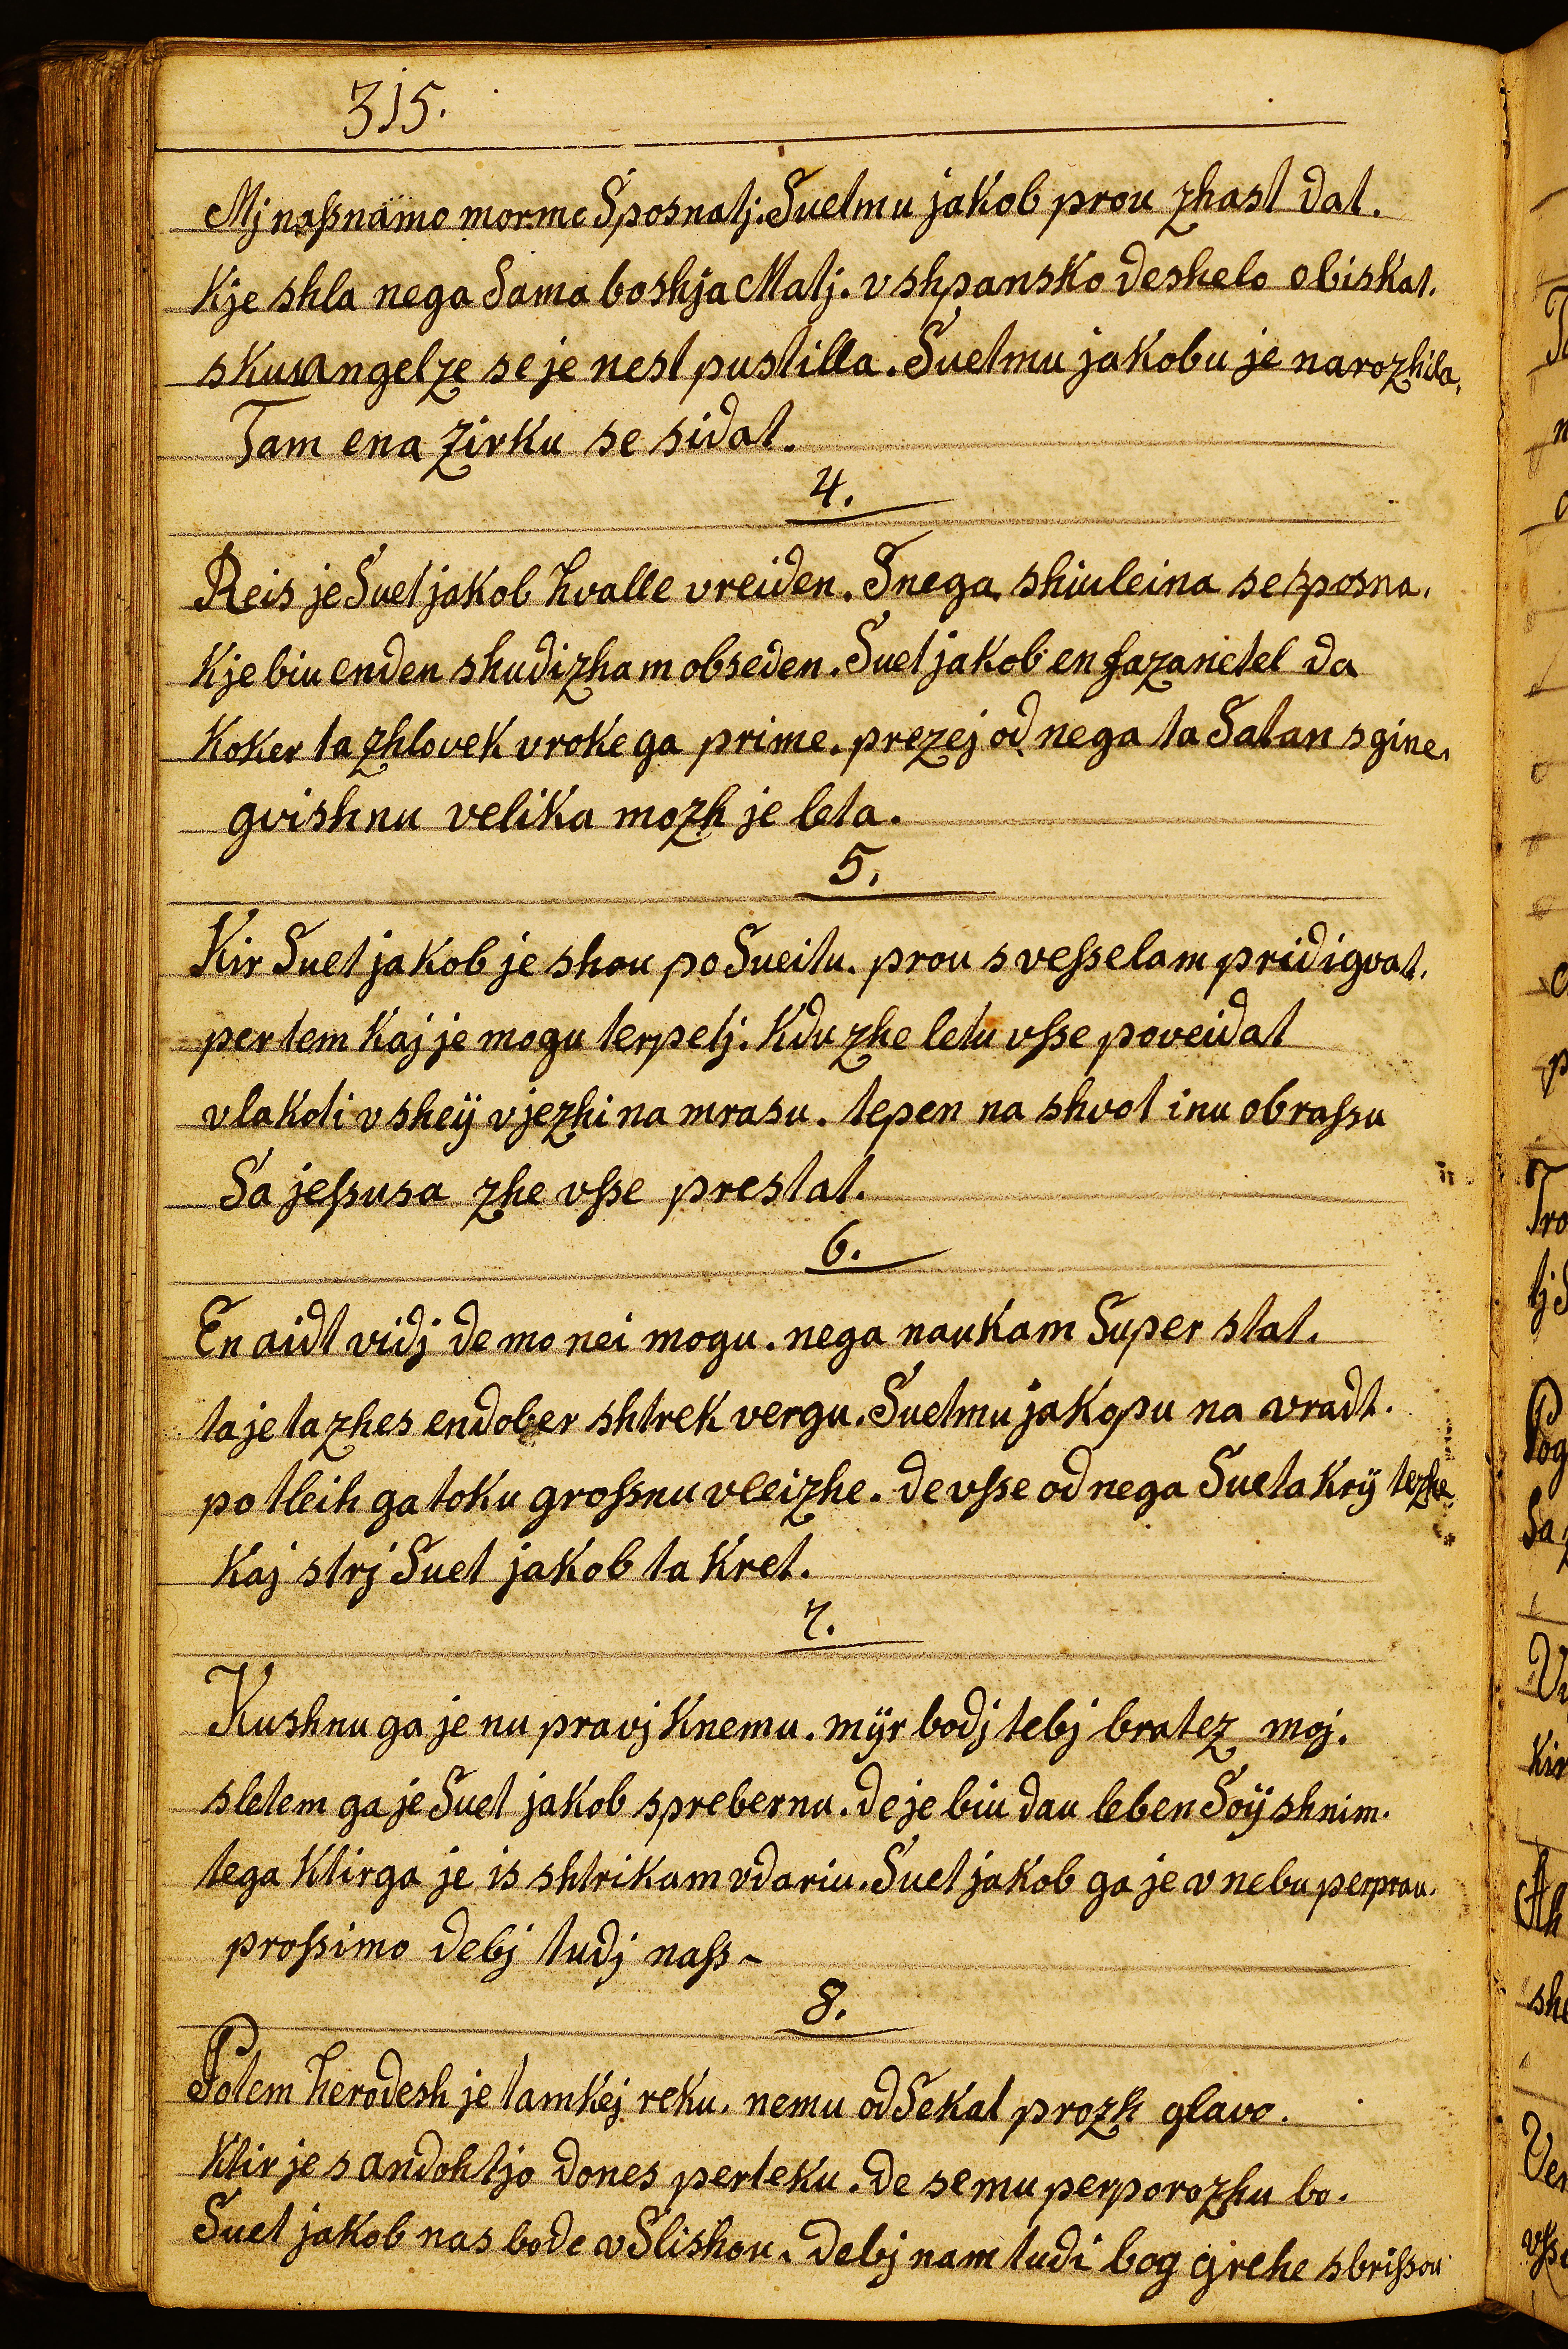 315.
Mj naſsnamo morme Sposnatj. Suetmu jakob prou zhast dat.
Kje shla nega Sama boshja Matj. v shpansko deshelo obiskat.
skusangelze se je nest pustilla. Suetmu jakobu je narozhila,
Tam ena zirku se sidat.
4.
Reis je Suet jakob hvalle vreiden. Snega shiuleina se sposna.
Kje biu enden shudizham obseden. Suet jakob en fazanetel da
Koker ta zhlovek vroke ga prime. prezej od nega ta Satan sgine.
gvishnu velika mozh je leta.
5.
Kir Suet jakob je shou po Sueitu. prou s veſselam pridigvat.
per tem kaj je mogu terpetj. Kdu zhe letu vſse poveidat
vlakoti v sheÿ v jezhi na mrasu. tepen na shvot inu obraſsu
Sa jeſsusa zhe vſse prestat.
6.
En aidt vidj de mo nei mogu. nega naukam Super stat.
ta je ta zhes endober shtrek vergu. Suetmu jakopu na vradt.
potleih ga toku groſsnu vleizhe. de vſse od nega Sueta krÿ tezhe
Kaj strj Suet jakob ta kret.
7.
Kushnu ga je nu pravj knemu. mÿr bodj tebj bratez moj.
sletem ga je Suet jakob sprebernu. de je biu dau leben Soÿ shnim.
tega ktirga je is shtrikam vdariu. Suet jakob ga je v nebu perprau.
proſsimo debj tudj naſs ~
8.
Potem herodesh je tamkej reku. nemu odSekat prozh glavo.
Ktir je s andohtjo dones perteku. de se mu perporozhu bo.
Suet jakob nas bode vSlishou. debj nam tudi bog grehe sbriſsou